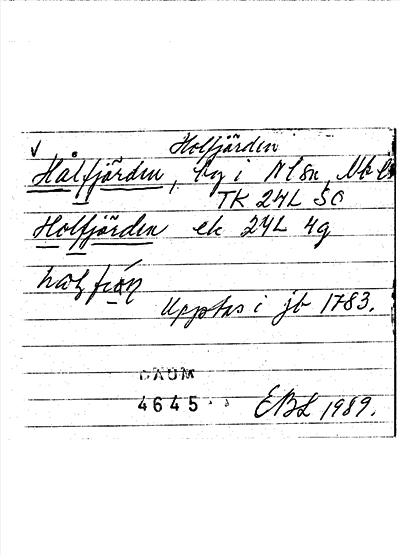 Holfjörden
Hålfjörden, by i Nlsn,
TK 24L SO
Holfjörden ek 24L 4g
Upptas i jb 1783.
DAUM
4645
EBL 1989.